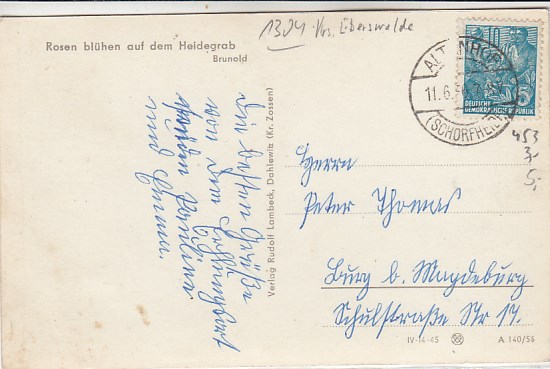 Rosen blühen auf dem Heidegrab
Brunold
1304 Krs. Eberswalde
ALTENHOF
11.6.5
(SCHORFHEIDE)
DEUTSCHE
DEMOKRATISCHE REPUBLIK
5
453
3,-
5,-
Die besten Grüße
von dem Erholungsort
Familie
und
Verlag Rudolf Lambeck, Dahlewitz (Kr. Zossen)
Herrn
Peter Thomas
Burg b. Magdeburg
Schulstraße Nr 17.
IV-14-45
A 140/56